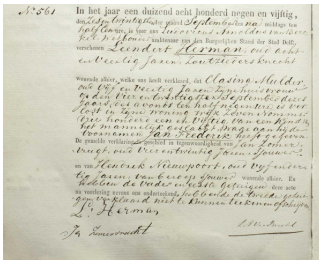 No 561
In het jaar een duizend acht honderd negen en vijftig,
den Zes en twintigsten der maand September des na middags ten
half een ure, is voor ons Ludovicus Arnoldus van
ambtenaar van den Burgerlijken Stand der Stad Delft,
verschenen Leendert Herman, oud acht
en veertig Jaren, Zoutziedersknecht
Wonende alhier, welke ons heeft verklaard, dat Clasina Mulder,
oud vijf en veertig Jaren, zijne huisvrouw
op den vier en twintigsten September dezes
jaars, des avonds ten half negen ure, is ver-
lost in zijne woning wijk Zeven nommer
honderd een en vijftig, van een Kind van
het mannelijk geslacht, hetwelk hij de
voornamen Jan Frederik heeft gegeven
De gemelde verklaring is geschied in tegenwoordigheid van Jan Zoner-
vragt, oud vier en twintig Jaren, Sjouwer
en van Hendrik Nieuwpoort, oud vijf en der-
tig Jaren, van beroep Sjouwer wonende alhier. En
hebben de vader en eerste getuigen deze acte
na voorlezing nevens ons onderteekend, hebbende de tweede getui-
gen verklaard niet te kunnen teekenen of schrijven
L. Herman
Jan